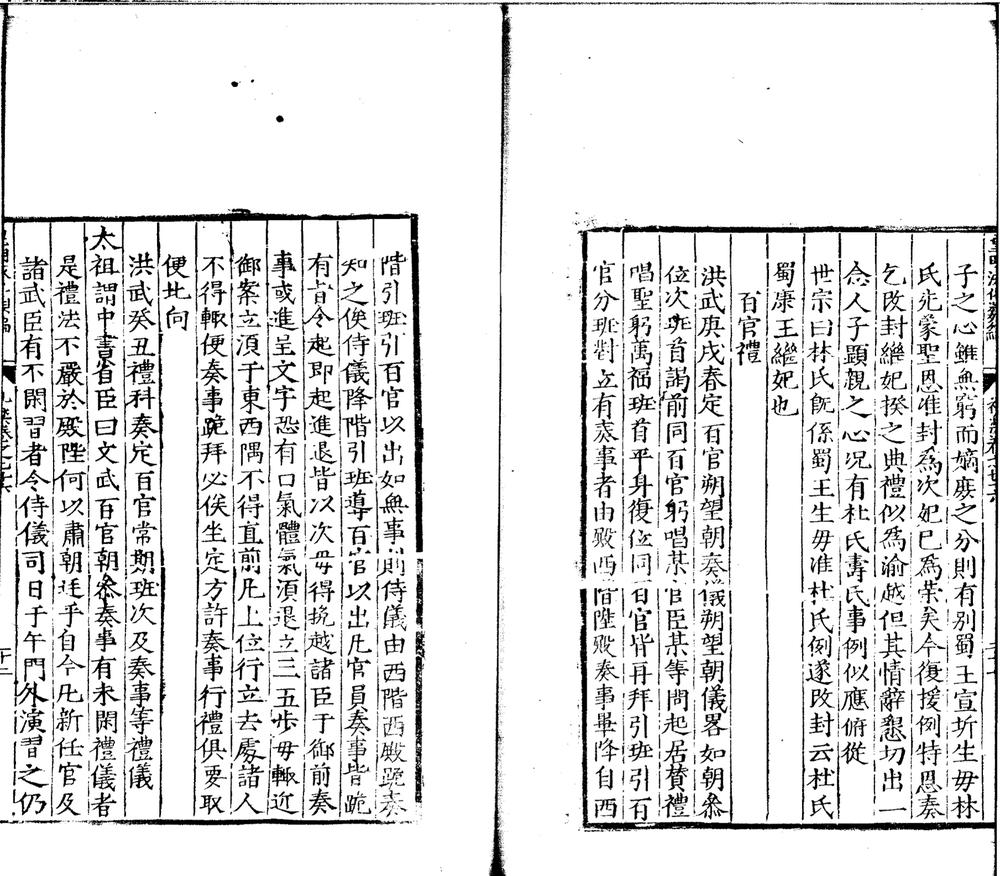 子之心雖無窮而嫡庶之分則有别蜀王宣圻生毋林
氏先蒙聖恩准封為次妃巳為榮矣今復援例特恩奏
乞改封繼妃揆之典禮似為渝越但其情辭懇切出一
念人子顯親之心况有杜氏壽氏事例似應俯從
世宗曰林氏旣係蜀王生毋准杜氏例遂改封云杜氏
蜀康王繼妃也
百官禮
洪武庚戌春定百官朔望朝奏儀朔望朝儀畧如朝叅
位次班首謁前同百官躬唱某官臣某等問起居賛禮
唱聖躬萬福班首平身復位同百官皆再拜引班引百
官分班對立有奏事者由殿西階陞殿奏事畢降自西
階引班引百官以出如無事則侍儀由西階西殿跪奏
知之俟侍儀降階引班導百官以出凡官員奏事皆跪
有旨令起即起進退皆以次毋得攙越諸臣于御前奏
事或進呈文字恐有口氣體氣須退立三五歩毋輙近
御案立須于東西隅不得直前凡上位行立去處諸人
不得輙便奏事跪拜必俟坐定方許奏事行禮俱要取
便北向
洪武癸丑禮科奏定百官常期班次及奏事等禮儀
太祖謂中書省臣曰文武百官朝叅奏事有未閑禮儀者
是禮法不嚴於殿陛何以肅朝廷乎自今凡新任官及
諸武臣有不閑習者令侍儀司日于午門外演習之仍